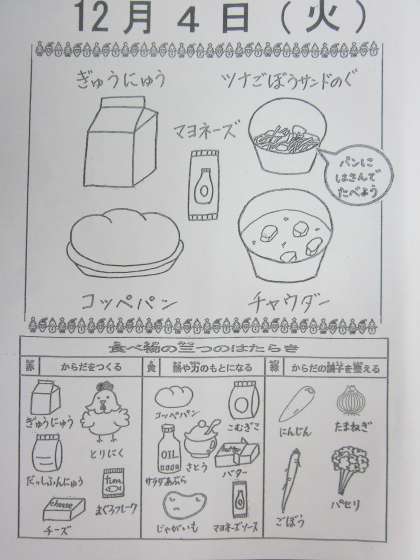 12月4日(火)
ぎゅうにゅう
ツナごぼうサンドのぐ
マヨネーズ
パンに
はさんで
たべよう
コッペパン
チャウダー
食べ物の三つのはたらき
赤 からだをつくる
黄 熱や力のもとになる
緑 からだの調子を整える
ぎゅうにゅう
とりにく
だっしふんにゅう
tuna
まぐろフレーク
cheese
チーズ
コッペパン
こむぎこ
OIL
さとう
サラダあぶら
バター
じゃがいも
マヨネーズソース
にんじん
たまねぎ
ごぼう
パセリ